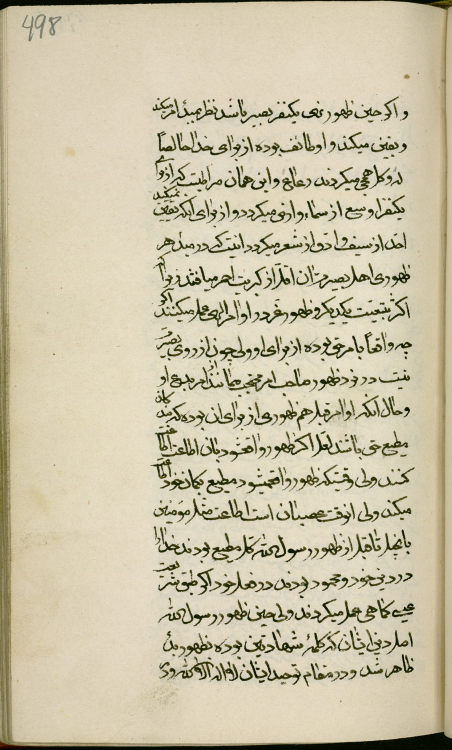 498
و اکر حین ظهور نمی یکنفر بصیر باشد نظر بمبدء امر میکند
و یقین میکند و او طائف بوده از برای خدا خالصاً
له و کلا همج میکردند رعاع و این همان مراطیست که از برای
یکنفر اوسع از سماء و ارض میکردد و از برای آنکه یقین نمیکند
احد از سیف و ادق از شعر میکردد اینست که در مبدء هر
ظهوری اهل بصیرت آن اقل از کبریت احمر میباشند زیرا که
اکثر بتبعیت یکدیکر و ظهور خود در اوامر الهی عمل میکنند اکر
چه واقعاً بامر حق بوده از برای او ولی چون از روی بصیرت
نیست در نزد ظهور صاحب امر محتجب میمانند از امر بدیع او
و حال آنکه اوامر قبل هم ظهوری از برای آن بوده که
مطیع حق باشد لعل اکر ظهور واقع شود بآن اطاعت
کنند ولی وقتیکه ظهور واقع میشود مطیع بکمان خود
میکند ولی آنوقت عصیان است اطاعت مثل مؤمنین
بانجیل تا قبل از ظهور رسول الله کل مطیع بودند خدا را
در دین خود و محمود بودند در عمل خود اکر طبق شریعت
عیسی کما هی عمل میکردند ولی حین ظهور رسول الله
اصل دین ایشان که کلمهٔ شهادتین بوده بظهور بدء
ظاهر شد و در مقام توحید ایشان لا اله الا الله روی